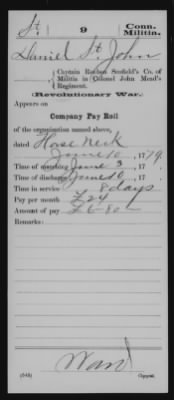 St. 9 Conn. Militia.
Daniel St. John
Captain Reuben Scofield's Co. of
Militia in Colonel John Mead's
Regiment.
(Revolutionary War.)
Appears on
Company Pay Roll
of the organization named above,
dated Horse Neck
June 10, 1779.
Time of marching June 3, 17
Time of discharge June 10, 17
Time in service 8 days
Pay per month £24
Amount of pay £6-8-0
Remarks:
Ward
(545) Copyist.